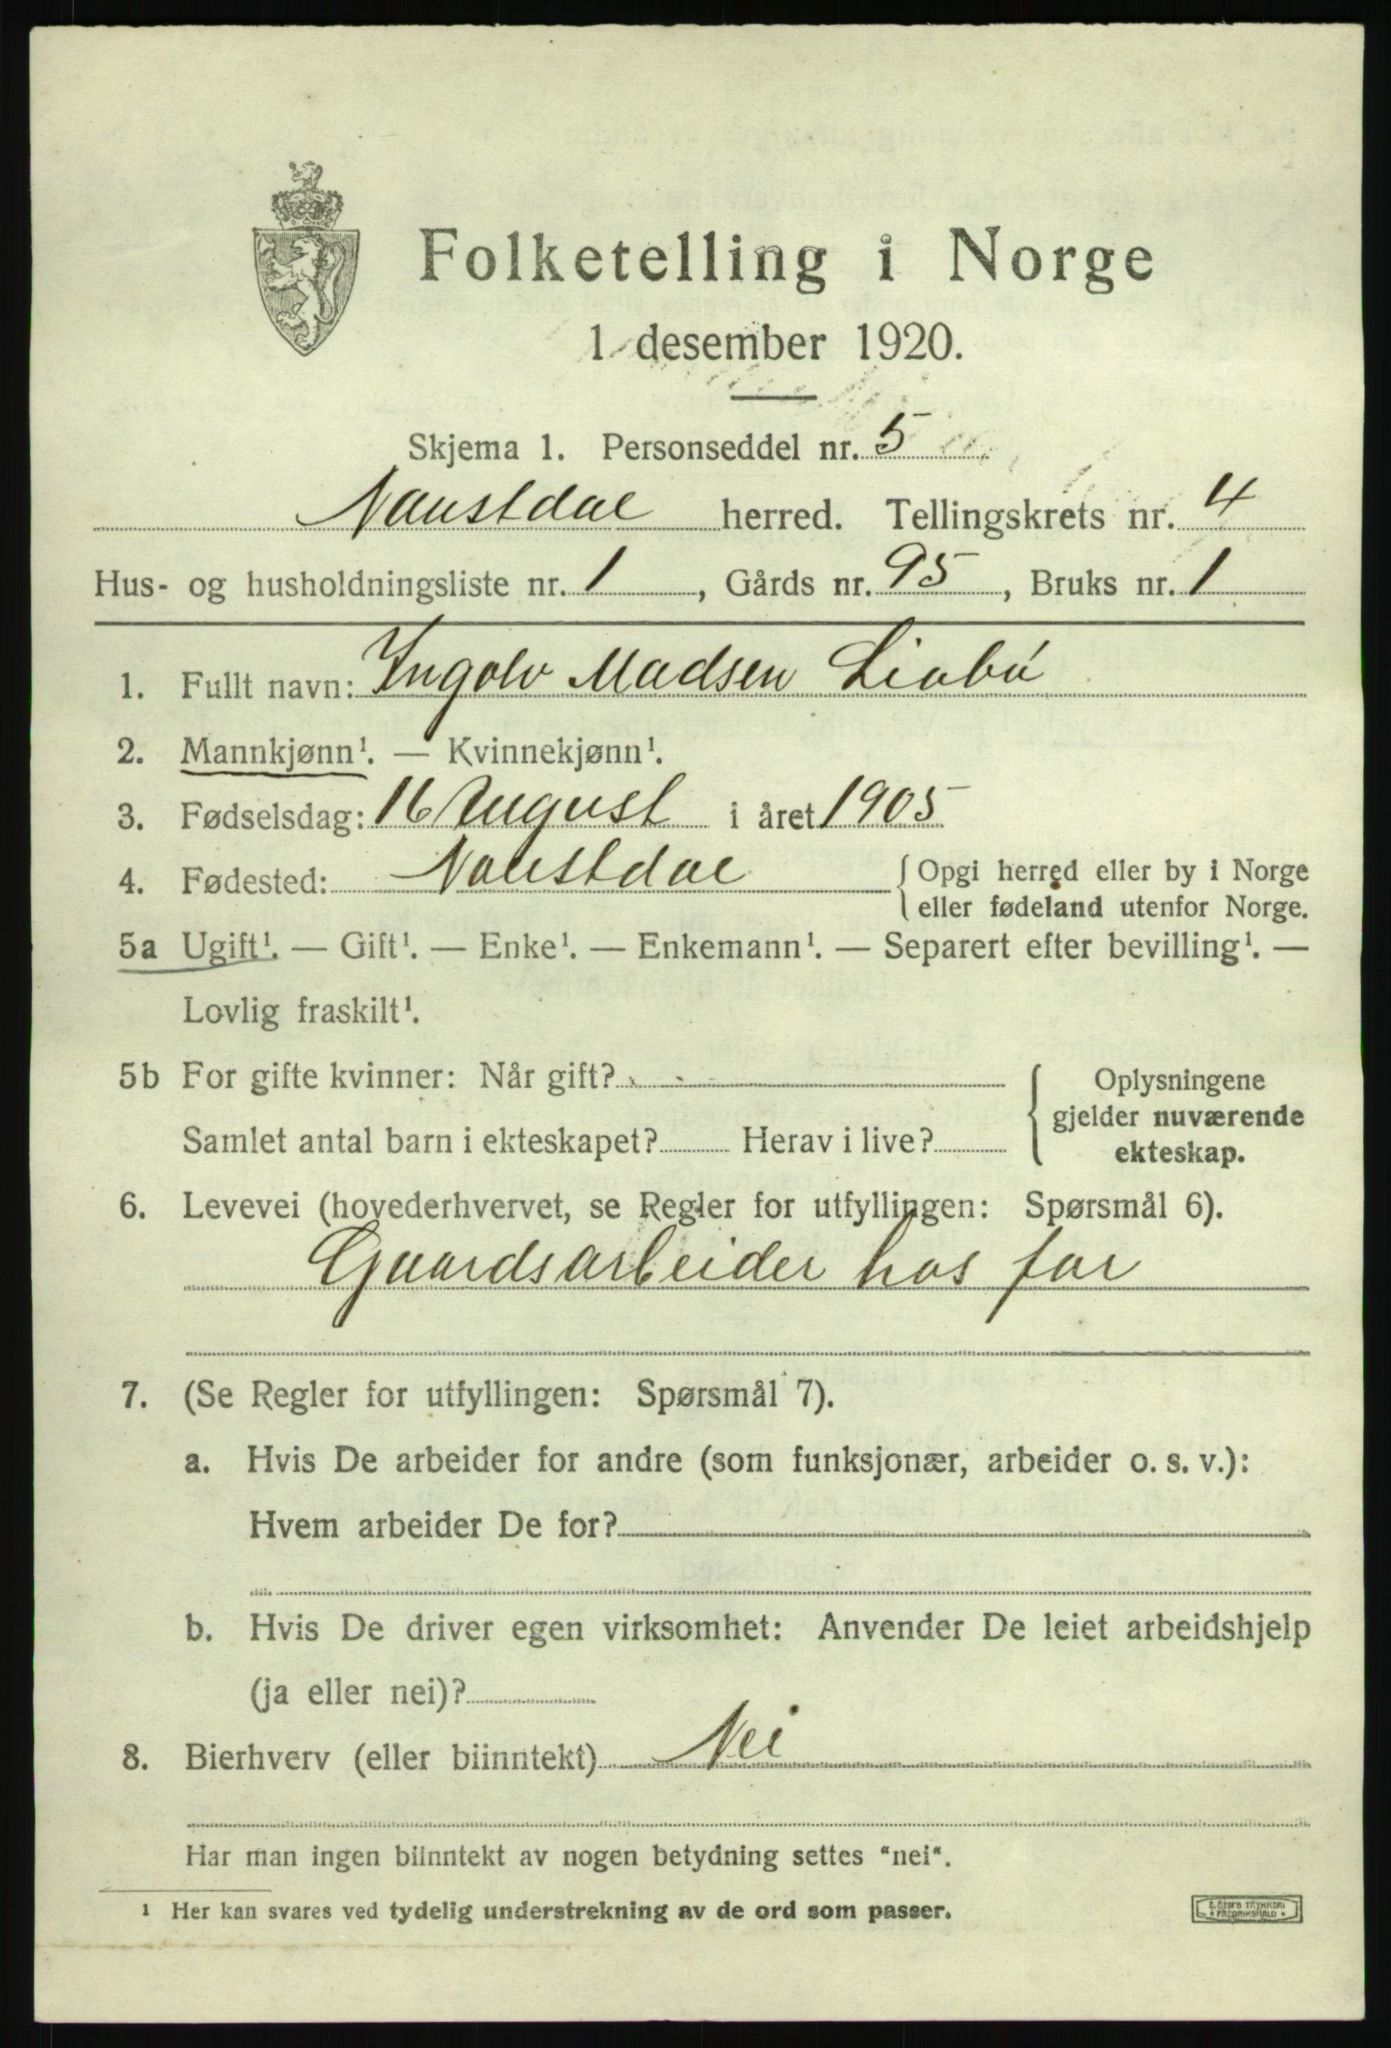 Folketelling i Norge
1 desember 1920.
Skjema 1. Personseddel nr. 5
Naustdal herred. Tellingskrets nr. 4
Hus- og husholdningsliste nr. 1, Gårds nr. 95, Bruks nr. 1
1. Fullt navn: Ingolv Madsen Liabö
2. Mannkjønn¹. — Kvinnekjønn¹.
3. Fødselsdag: 16 August i året 1905
4. Fødested: Naustdal { Opgi herred eller by i Norge
eller fødeland utenfor Norge.
5a Ugift¹. — Gift¹. — Enke¹. — Enkemann¹. — Separert efter bevilling¹. —
Lovlig fraskilt¹.
5b For gifte kvinner: Når gift? { Oplysningene
gjelder nuværende
Samlet antal barn i ekteskapet? Herav i live? ekteskap.
6. Levevei (hovederhvervet, se Regler for utfyllingen: Spørsmål 6).
Gaardsarbeider hos far
7. (Se Regler for utfyllingen: Spørsmål 7).
a. Hvis De arbeider for andre (som funksjonær, arbeider o. s. v.):
Hvem arbeider De for?
b. Hvis De driver egen virksomhet: Anvender De leiet arbeidshjelp
(ja eller nei)?
8. Bierhverv (eller biinntekt) Nei
Har man ingen biinntekt av nogen betydning settes "nei".
¹ Her kan svares ved tydelig understrekning av de ord som passer.
TRYKKERI
FREDRIKSHALD